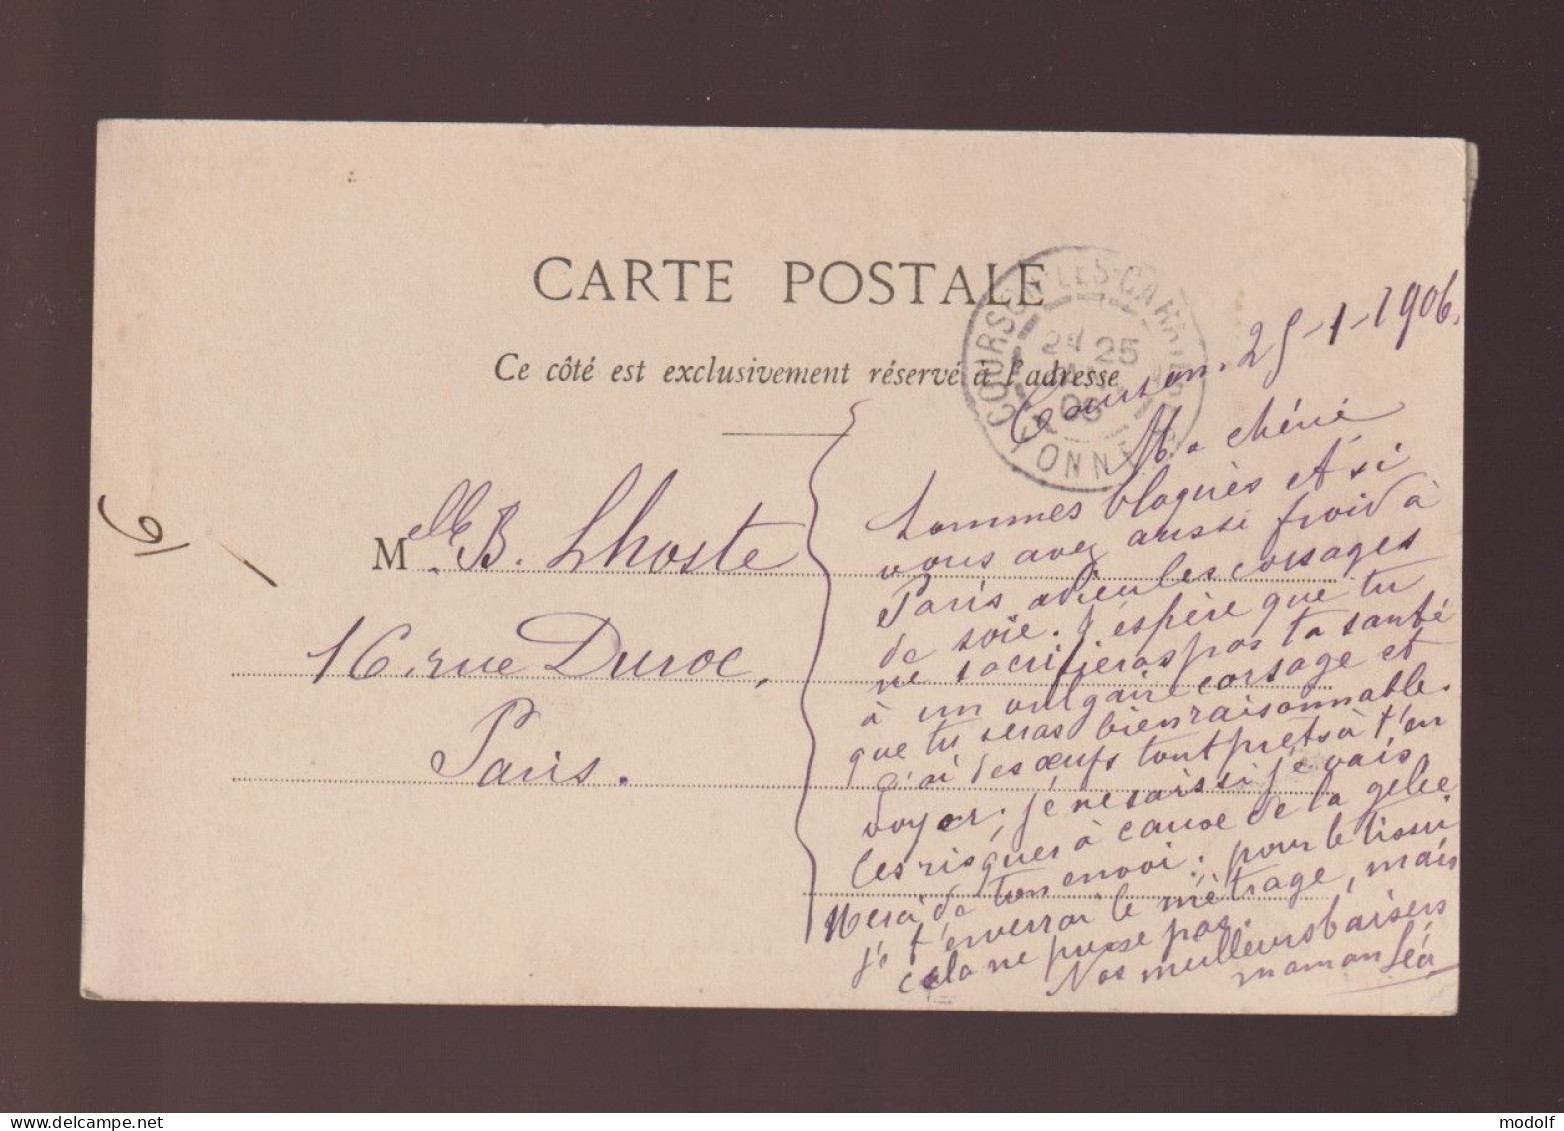 CARTE POSTALE
Ce côté est exclusivement réservé à l'adresse
COURSON-LES-CARRIÈRES
YONNE
25
06
Courson. 25-1-1906.
Ma chérie
Sommes bloqués et si
vous avez aussi froid à
Paris adieu les corsages
de soie. J'espère que tu
ne sacrifieras pas ta santé
à un vulgaire corsage et
que tu seras bien raisonnable.
J'ai des œufs tout prêts à t'en
voyer; je ne sais si je vais
les risquer à cause de la gelée
Merci de ton envoi; pour le tissu
je t'enverrai le métrage, mais
cela ne presse pas.
Nos meilleurs baisers
maman Léa
Melle B. Lhoste
16, rue Duroc,
Paris.
91
modolf